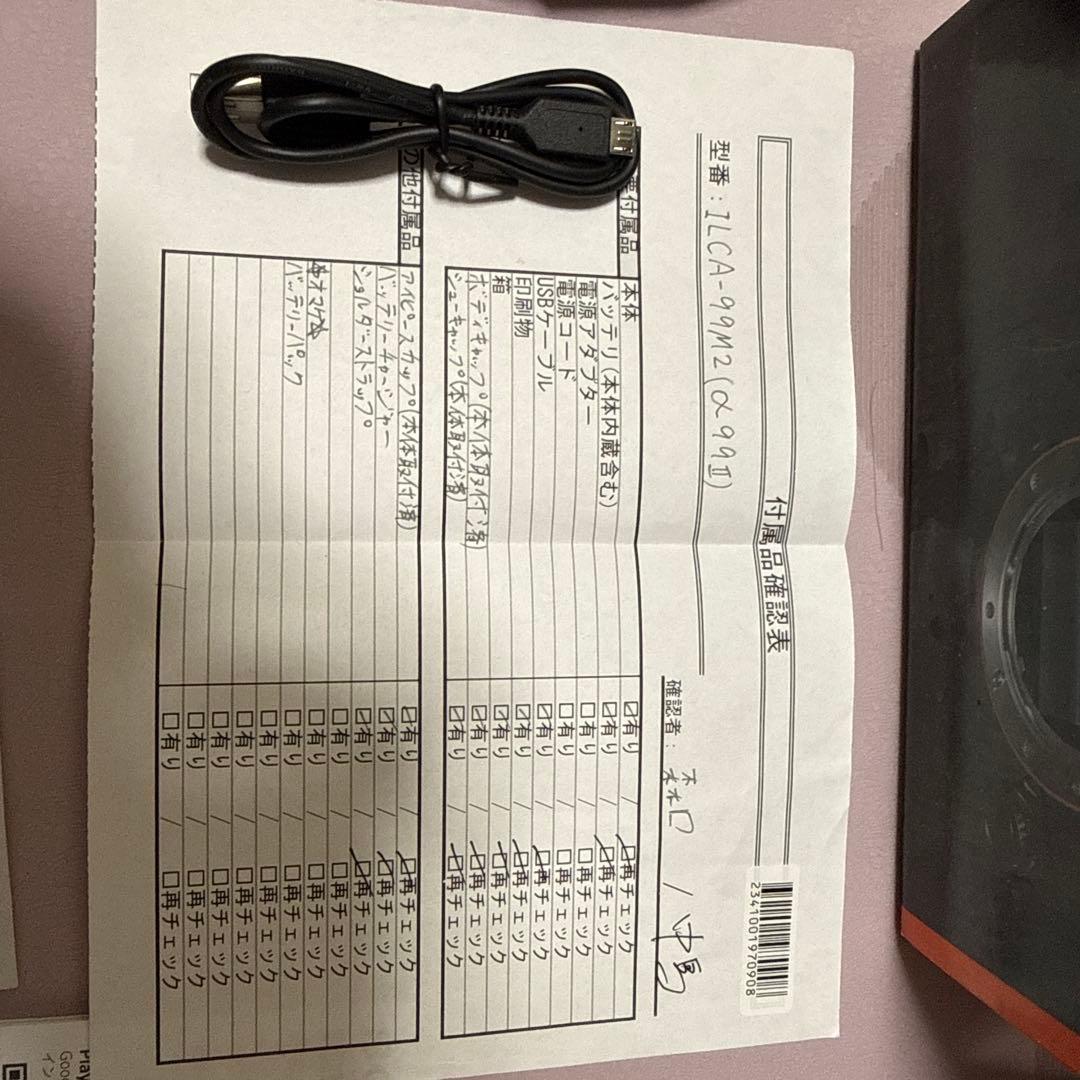 付属品確認表
2341001970908
型番:ILCA-99M2(α99Ⅱ)
確認者: / 中島
要付属品
本体 ☑有り / ☑再チェック
バッテリ(本体内蔵含む) ☑有り / ☑再チェック
電源アダプター □有り / □再チェック
電源コード □有り / □再チェック
USBケーブル ☑有り / ☑再チェック
印刷物 ☑有り / ☑再チェック
箱 ☑有り / ☑再チェック
ボディキャップ(本体取付済) ☑有り / ☑再チェック
シューキャップ(本体取付済) ☑有り / ☑再チェック
の他付属品
アイピースカップ(本体取付済) ☑有り / ☑再チェック
バッテリーチャージャー ☑有り / ☑再チェック
ショルダーストラップ ☑有り / ☑再チェック
□有り / □再チェック
☆オマケ☆ □有り / □再チェック
バッテリーパック □有り / □再チェック
□有り / □再チェック
□有り / □再チェック
□有り / □再チェック
□有り / □再チェック
□有り / □再チェック
Play
Goo
イン